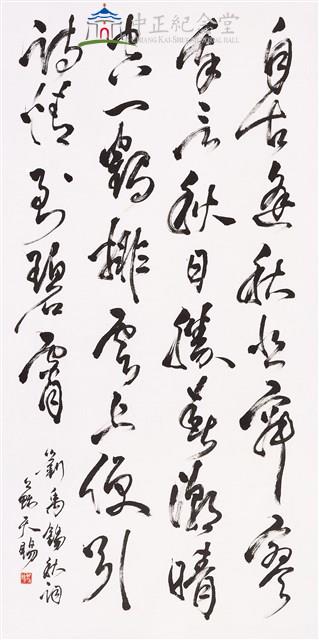 中正紀念堂
CHIANG KAI-SHEK MEMORIAL HALL
自古逢秋悲寂寥
我言秋日勝春潮晴
空一鶴排雲上便引
詩情到碧霄
劉禹錫秋詞
蘇天賜